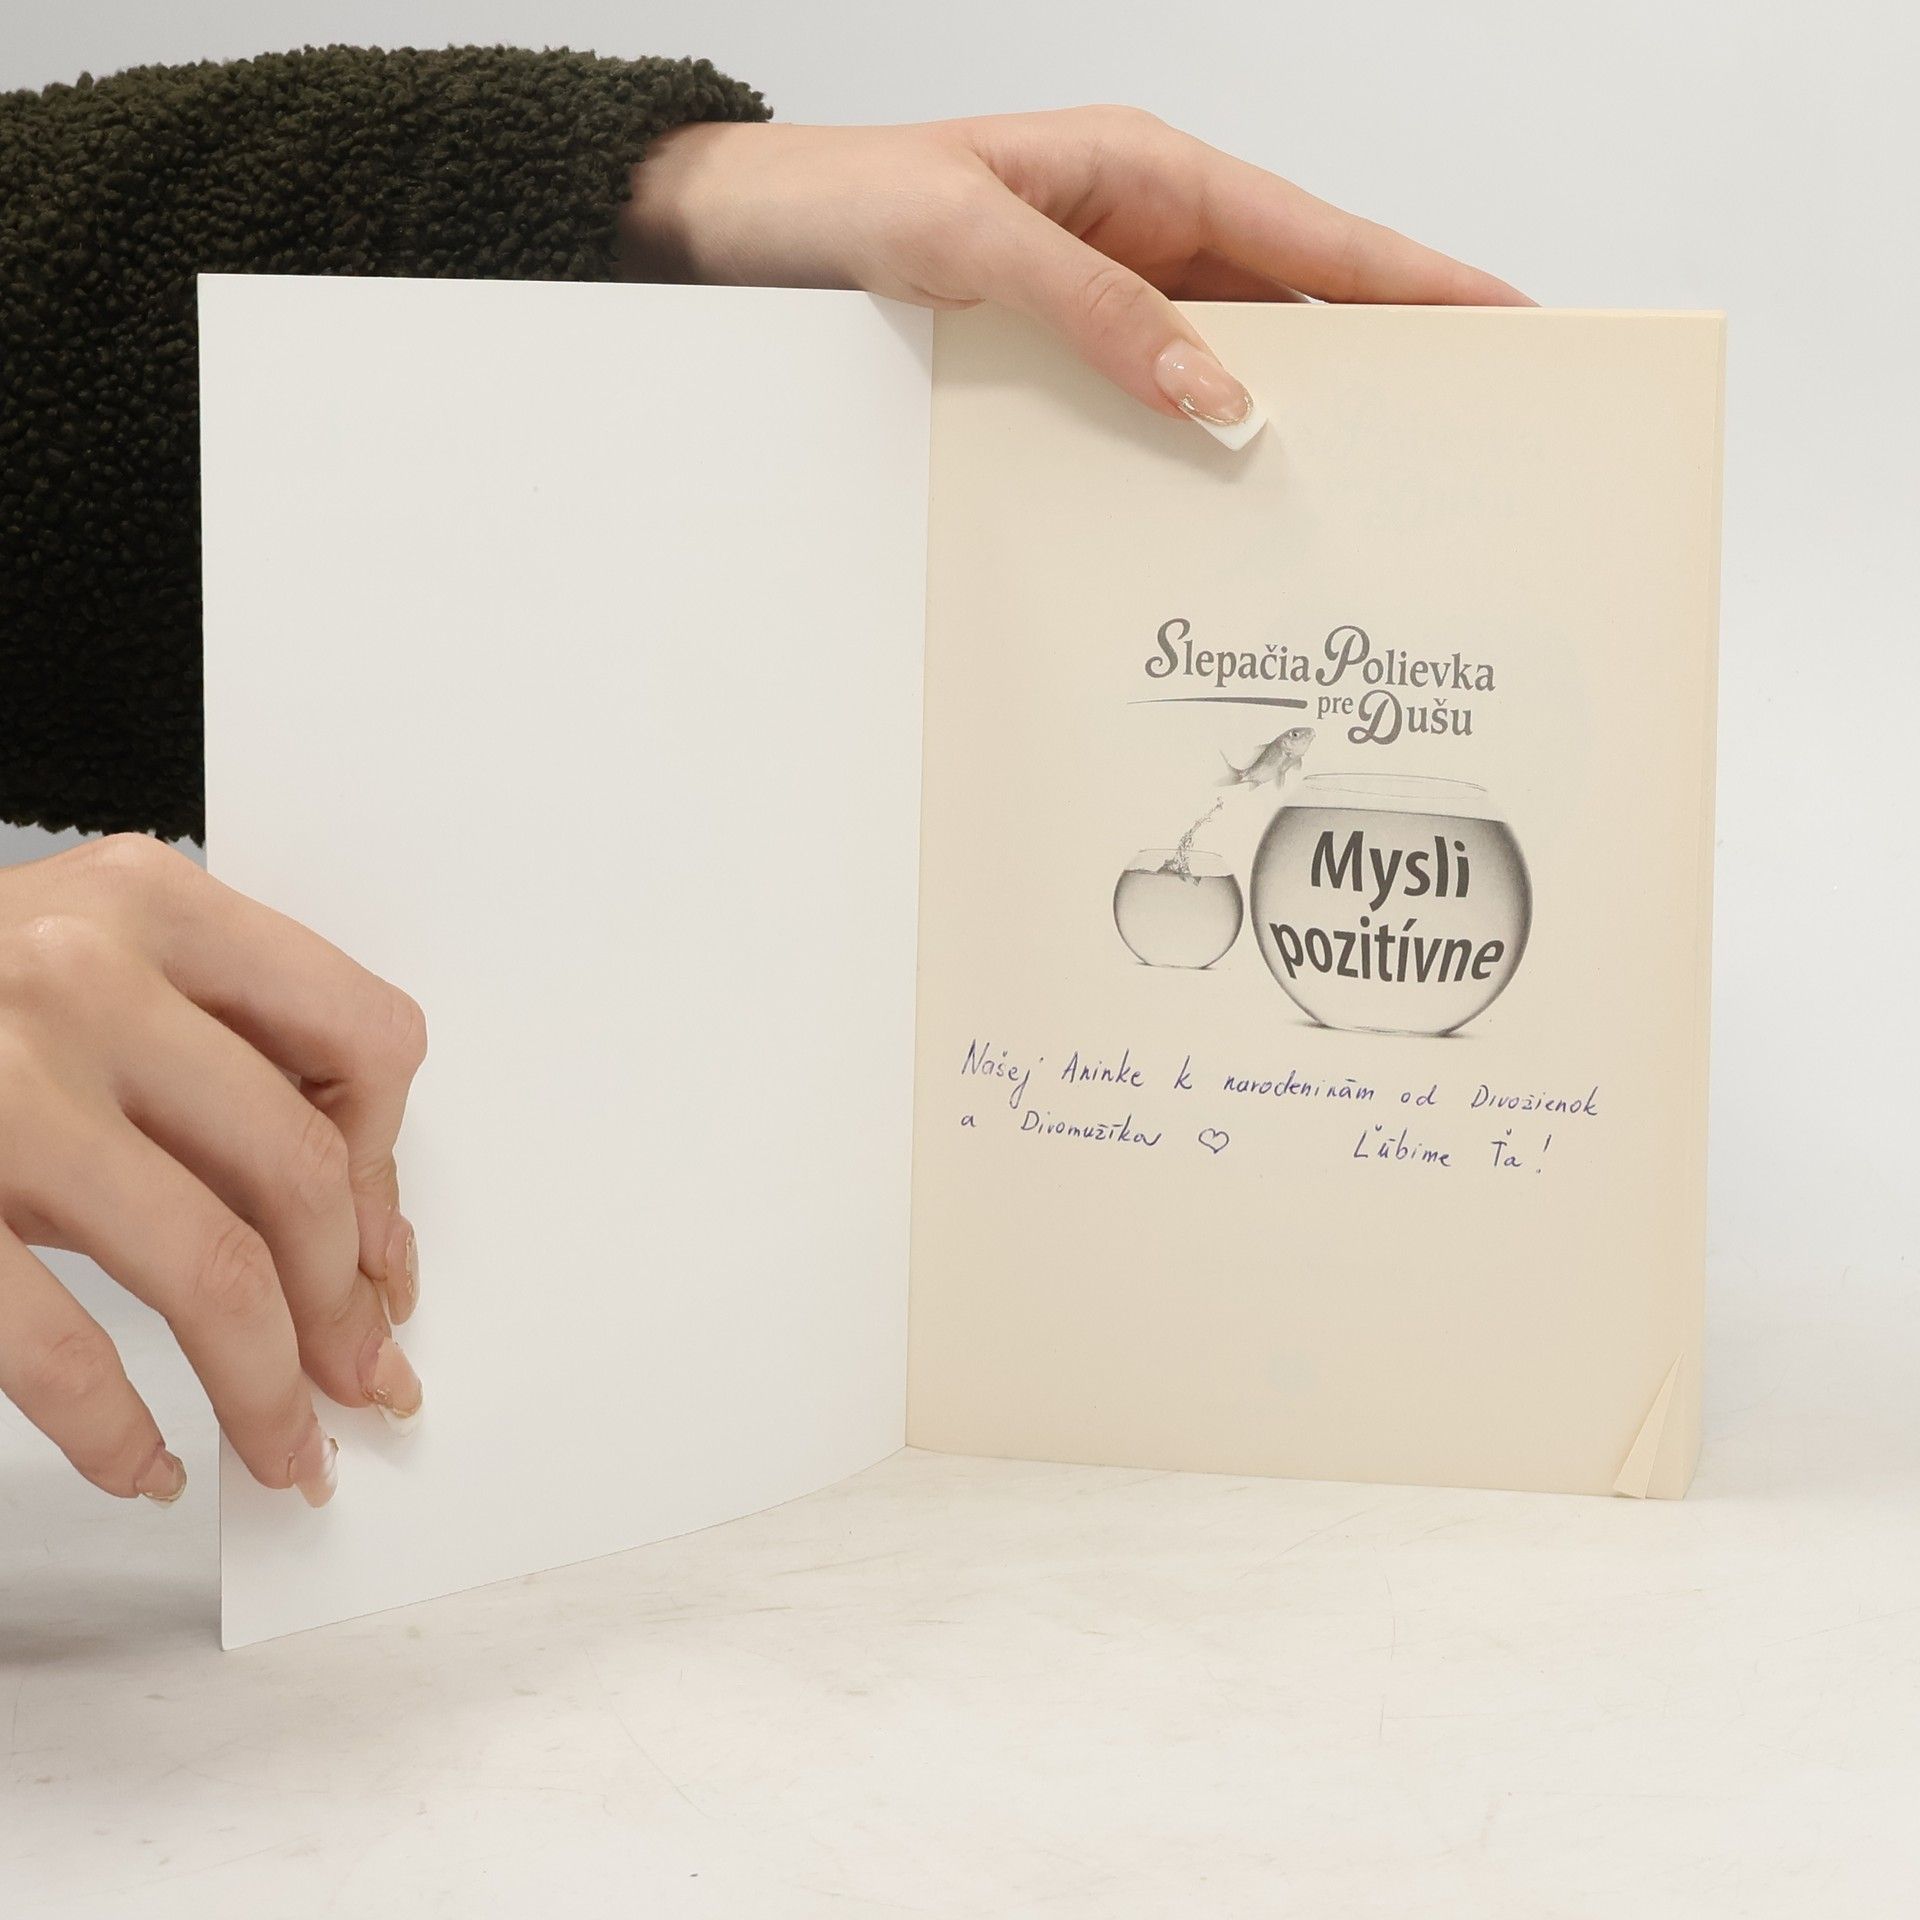 Slepačia Polievka
pre Dušu
Mysli
pozitívne
Našej Aninke k narodeninám od Divožienok
a Divomužíkov ♡ Ľúbime Ťa!